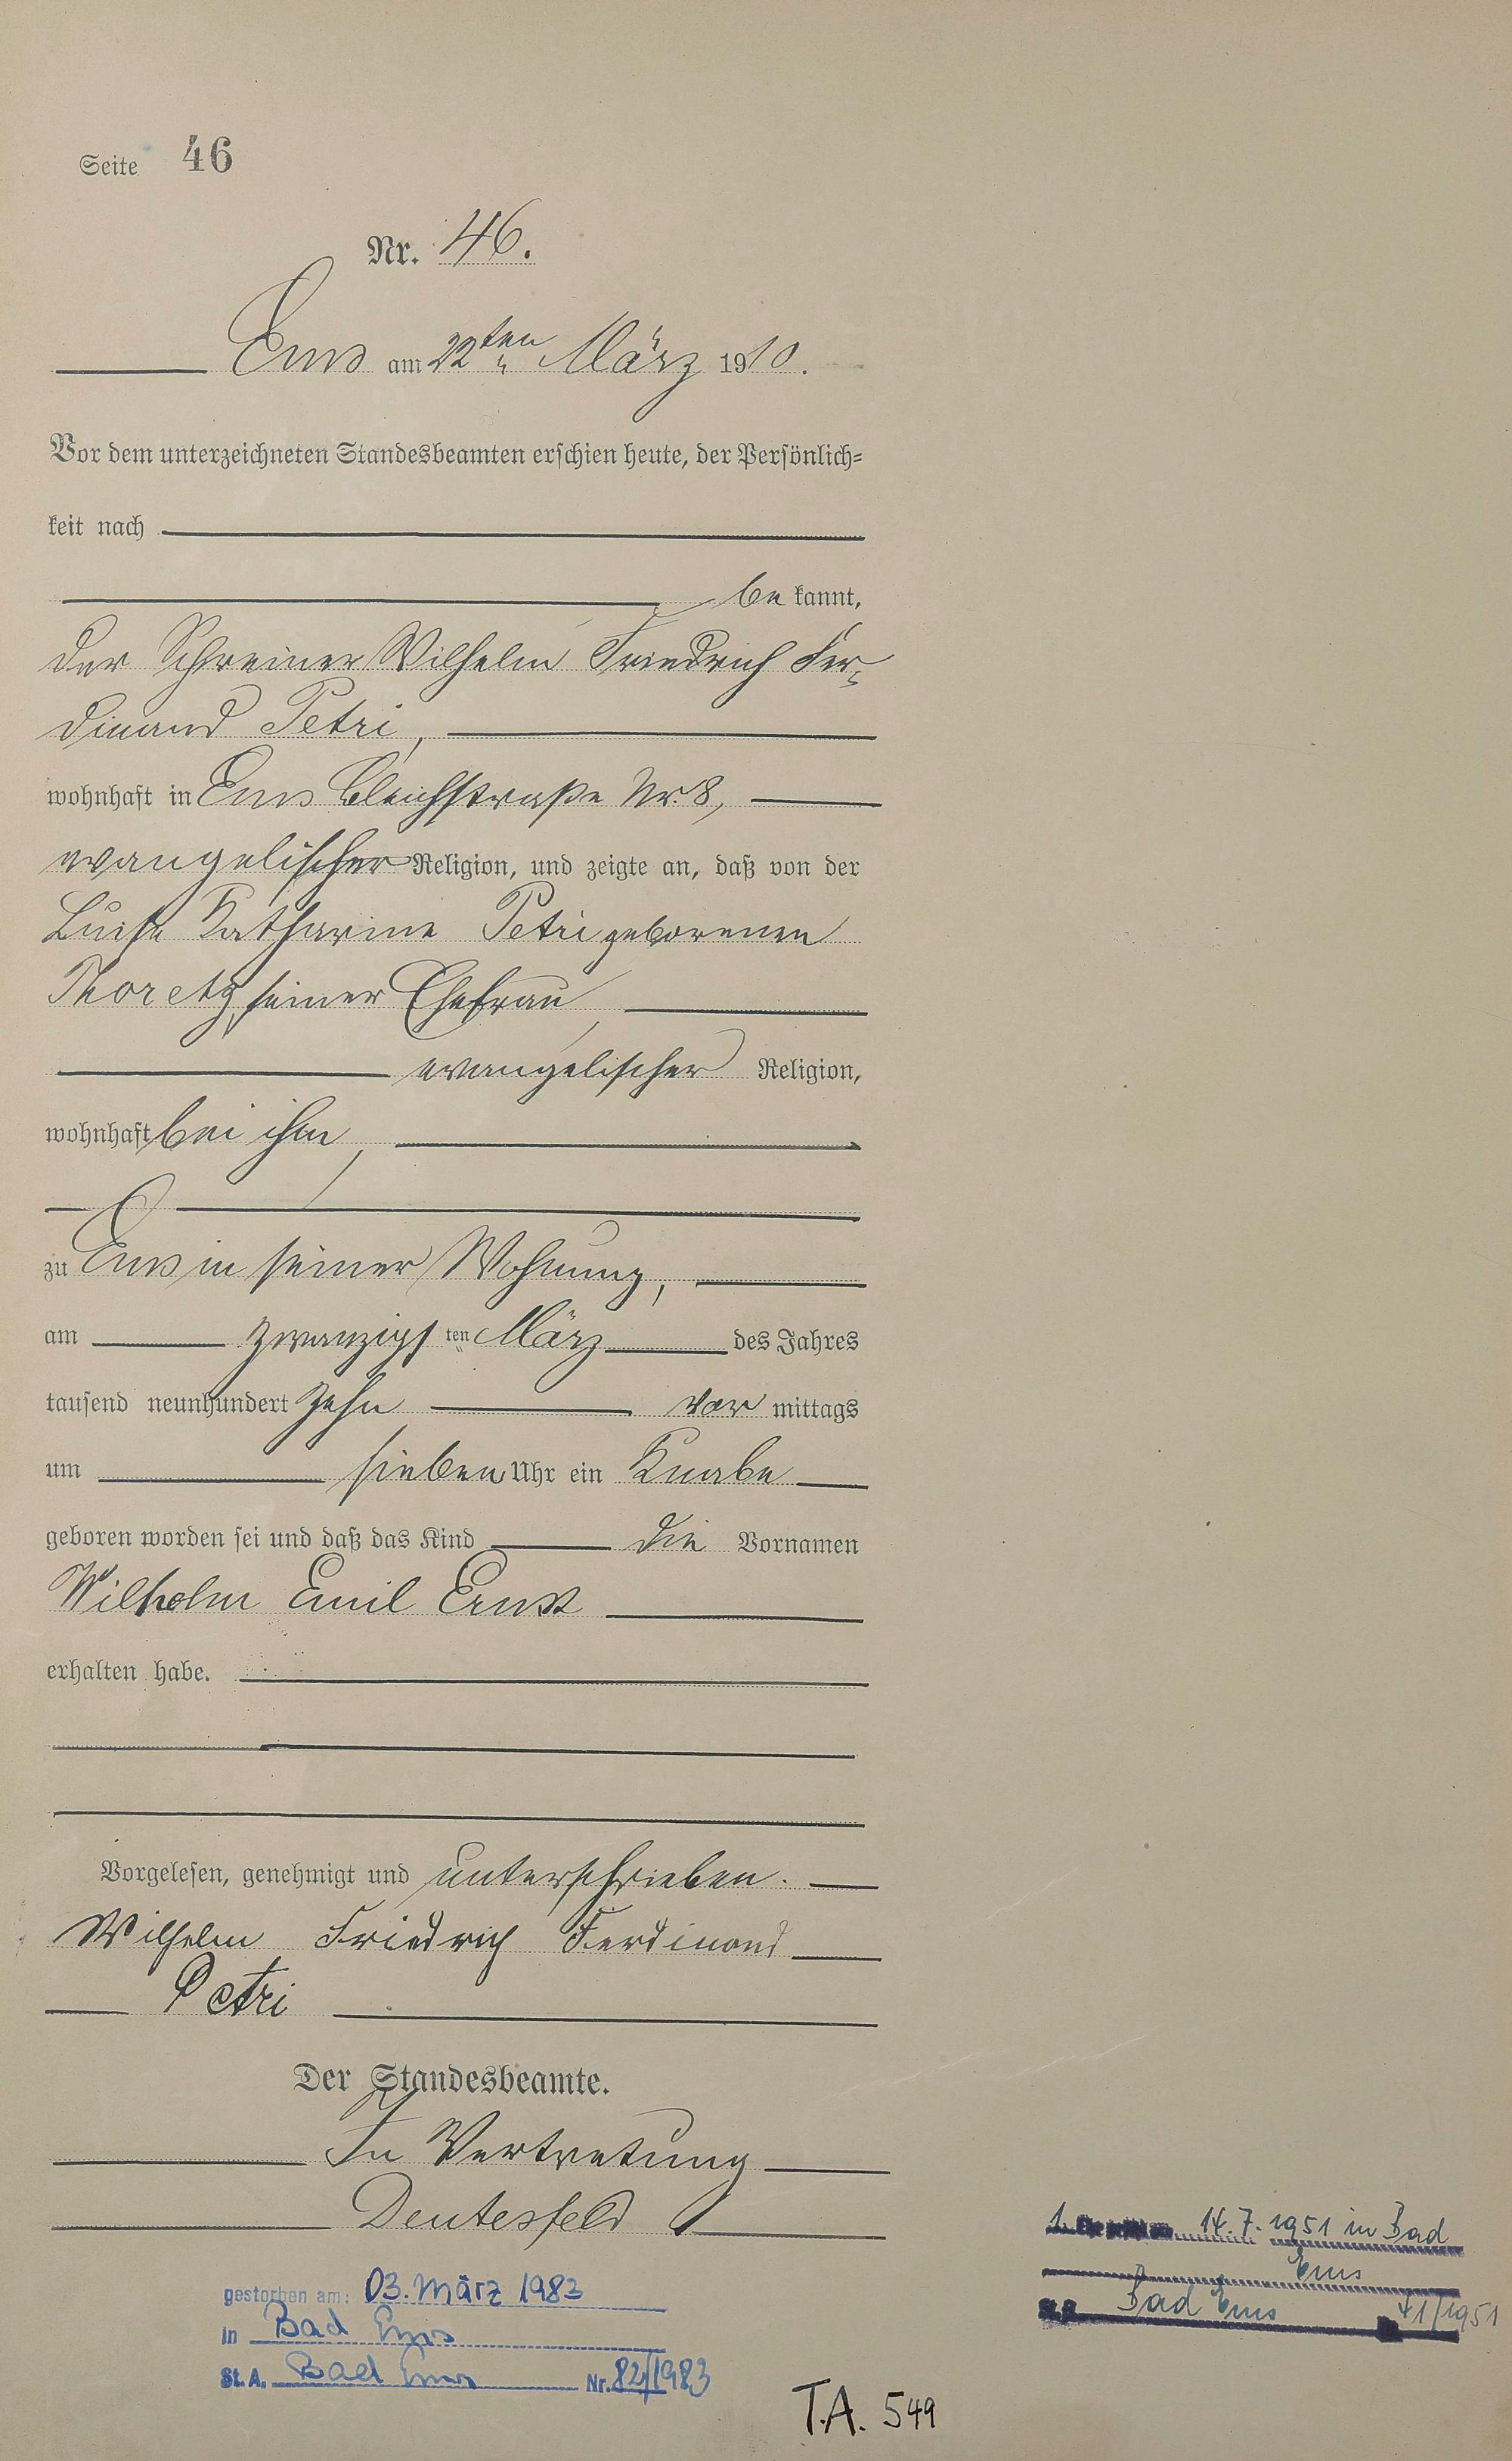 Seite 46
Nr. 46.
Ems am 22ten März 1910.
Vor dem unterzeichneten Standesbeamten erschien heute, der Persönlich-
keit nach
be kannt,
der Schreiner Wilhelm Friedrich Fer-
dinand Petri,
wohnhaft in Ems Bleichstraße Nr. 8,
evangelischer Religion, und zeigte an, daß von der
Luise Katharine Petri geborenen
seiner Ehefrau,
evangelischer Religion,
wohnhaft bei ihm,
zu Ems in seiner Wohnung,
am zwanzigsten März des Jahres
tausend neunhundert zehn vor mittags
um sieben Uhr ein Knabe
geboren worden sei und daß das Kind die Vornamen
Wilhelm Emil Ernst
erhalten habe.
Vorgelesen, genehmigt und unterschrieben.
Wilhelm Friedrich Ferdinand
Petri
Der Standesbeamte.
In Vertretung
Deutesfeld
1. 14.7.1951 in Bad
Ems
Bad Ems 41/1951
gestorben am: 03. März 1983
in Bad Ems
St. A. Bad Ems Nr. 82/1983
T.A. 549